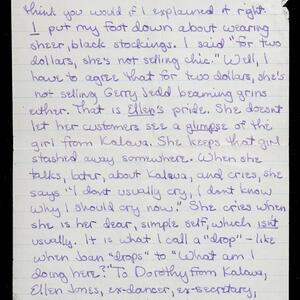 think you would if I explained it right.
I put my foot down about wearing
sheer, black stockings. I said "For two
dollars, she's not selling chic." Well, I
have to agree that for two dollars, she's
not selling Gerry Jedd beaming grins
either. That is Ellen's pride. She doesnt
let her customers see a glimpse of the
girl from Kalawa. She keeps that girl
stashed away somewhere. When she
talks, later, about Kalawa, and cries, she
says "I dont usually cry, I dont know
why I should cry now." She cries when
she is her dear, simple self, which isnt
usually. It is what I call a "drop" – like
when Joan "drops" to "What am I
doing here?" To Dorothy from Kalawa,
Ellen Jones, ex-dancer, ex-secretary,